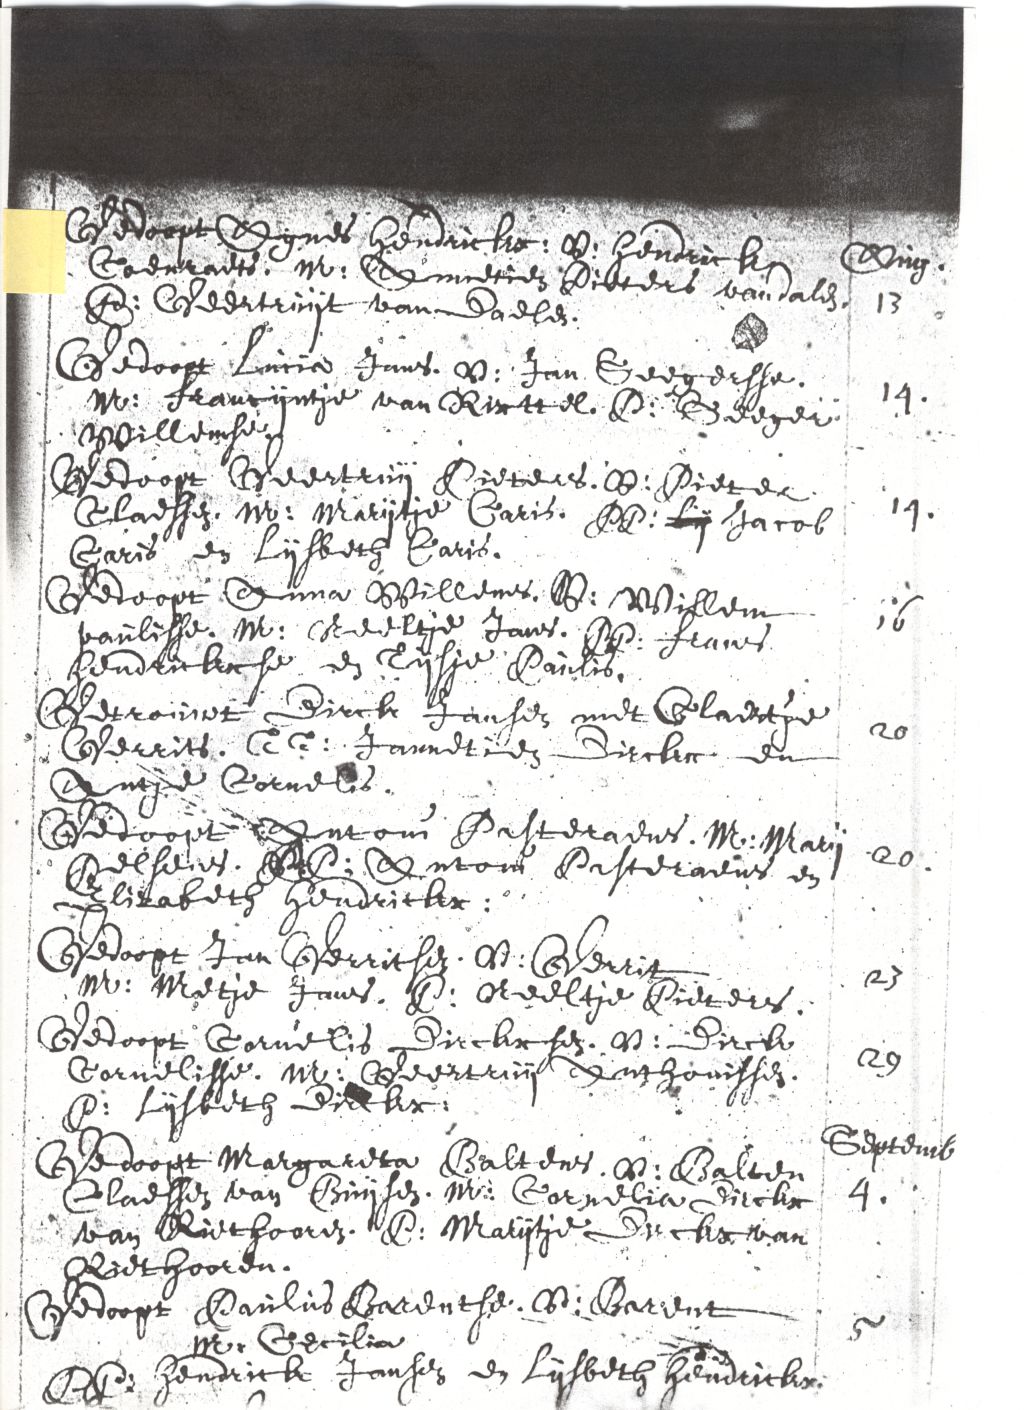 Gedoopt Agnes Hendrickx: V: Hendrick Aug.
Coenraets. M: Annetien Pieters van dalen. 13
P: Geertruyt van Daelen.
Gedoopt Lucia Jans. V: Jan Seegersse.
M: Francyntje van Rixttel. P: Seeger 14.
Willemse.
Gedoopt Geertruij Pieters. V: Pieter
Claessen. M: Marijtje Caris. PP: Jacob 14.
Caris en Lijsbeth Caris.
Gedoopt Anna Willems. V: Willem 16
paulisse. M: Neeltje Jans. PP: frans
hendrickxse en Tijsje Paulis.
Getrouwt Dirck Jansen met Claertje 20
Gerrits. TT: Jannetien Dirckx en
Antje Cornelis.
Gedoopt Antoni Pasteraens. M: Marij 20.
Nelsens. PP: Antoni Pasteraens en
Elizabeth Hendrickx:
Gedoopt Jan Gerritsen. V: Gerrit 23
M: Metje Jans. P: Neeltje Pieters.
Gedoopt Cornelis Dirckxsen. V: Dirck 29
Cornelisse. M: Geertruij Anthonissen.
P: Lijsbeth Dirckx:
Septemb
Gedoopt Margareta Baltens. V: Balten 4.
Claessen van Buijsen. M: Cornelia Dirckx
van Riethooren. P: Marijtje Dirckx van
Riethooren.
Gedoopt Paulus Barentse. V: Barent 5
M: Cecilia
PP: Hendrick Jansen en Lijsbeth Hendrickx.